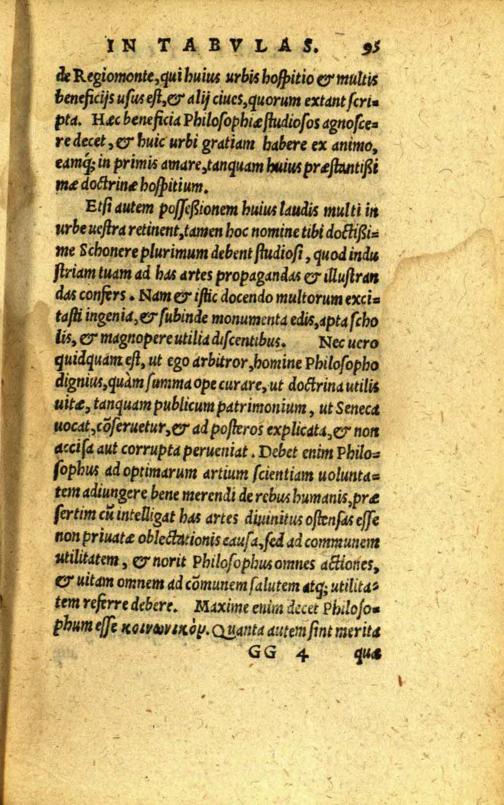 IN TABVLAS. 95
de Regiomonte, qui huius urbis hospitio & multis
beneficijs usus est, & alij ciues, quorum extant scri=
pta. Hæc beneficia Philosophiæ studiosos agnosce=
re decet, & huic urbi gratiam habere ex animo,
eamq́; in primis amare, tanquam huius præstantißi
mæ doctrinæ hospitium.
Etsi autem posseßionem huius laudis multi in
urbe uestra retinent, tamen hoc nomine tibi doctißi=
me Schonere plurimum debent studiosi, quod indu
striam tuam ad has artes propagandas & illustran
das confers. Nam & istic docendo multorum exci=
tasti ingenia, & subinde monumenta edis, apta scho
lis, & magnopere utilia discentibus. Nec uero
quidquam est, ut ego arbitror, homine Philosopho
dignius, quàm summa ope curare, ut doctrina utilis
uitæ, tanquam publicum patrimonium, ut Seneca
uocat, cõseruetur, & ad posteros explicata, & non
accisa aut corrupta perueniat. Debet enim Philo=
sophus ad optimarum artium scientiam uolunta=
tem adiungere bene merendi de rebus humanis, præ
sertim cũ intelligat has artes diuinitus ostensas esse
non priuatæ oblectationis causa, sed ad communem
utilitatem, & norit Philosophus omnes actiones,
& uitam omnem ad cõmunem salutem atq; utilita=
tem referre debere. Maxime enim decet Philoso=
phum esse κοινωνικὸν. Quanta autem sint merita
GG 4 quæ